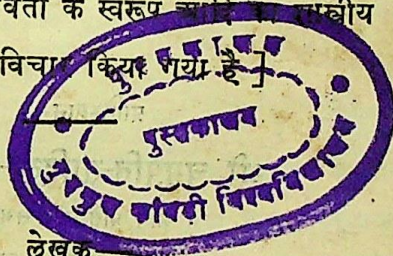 के स्वरूप आदि का शास्त्रीय
विचार किया गया है ]
पुस्तकालय
गुरुकुल कांगड़ी विश्वविद्यालय
लेखक